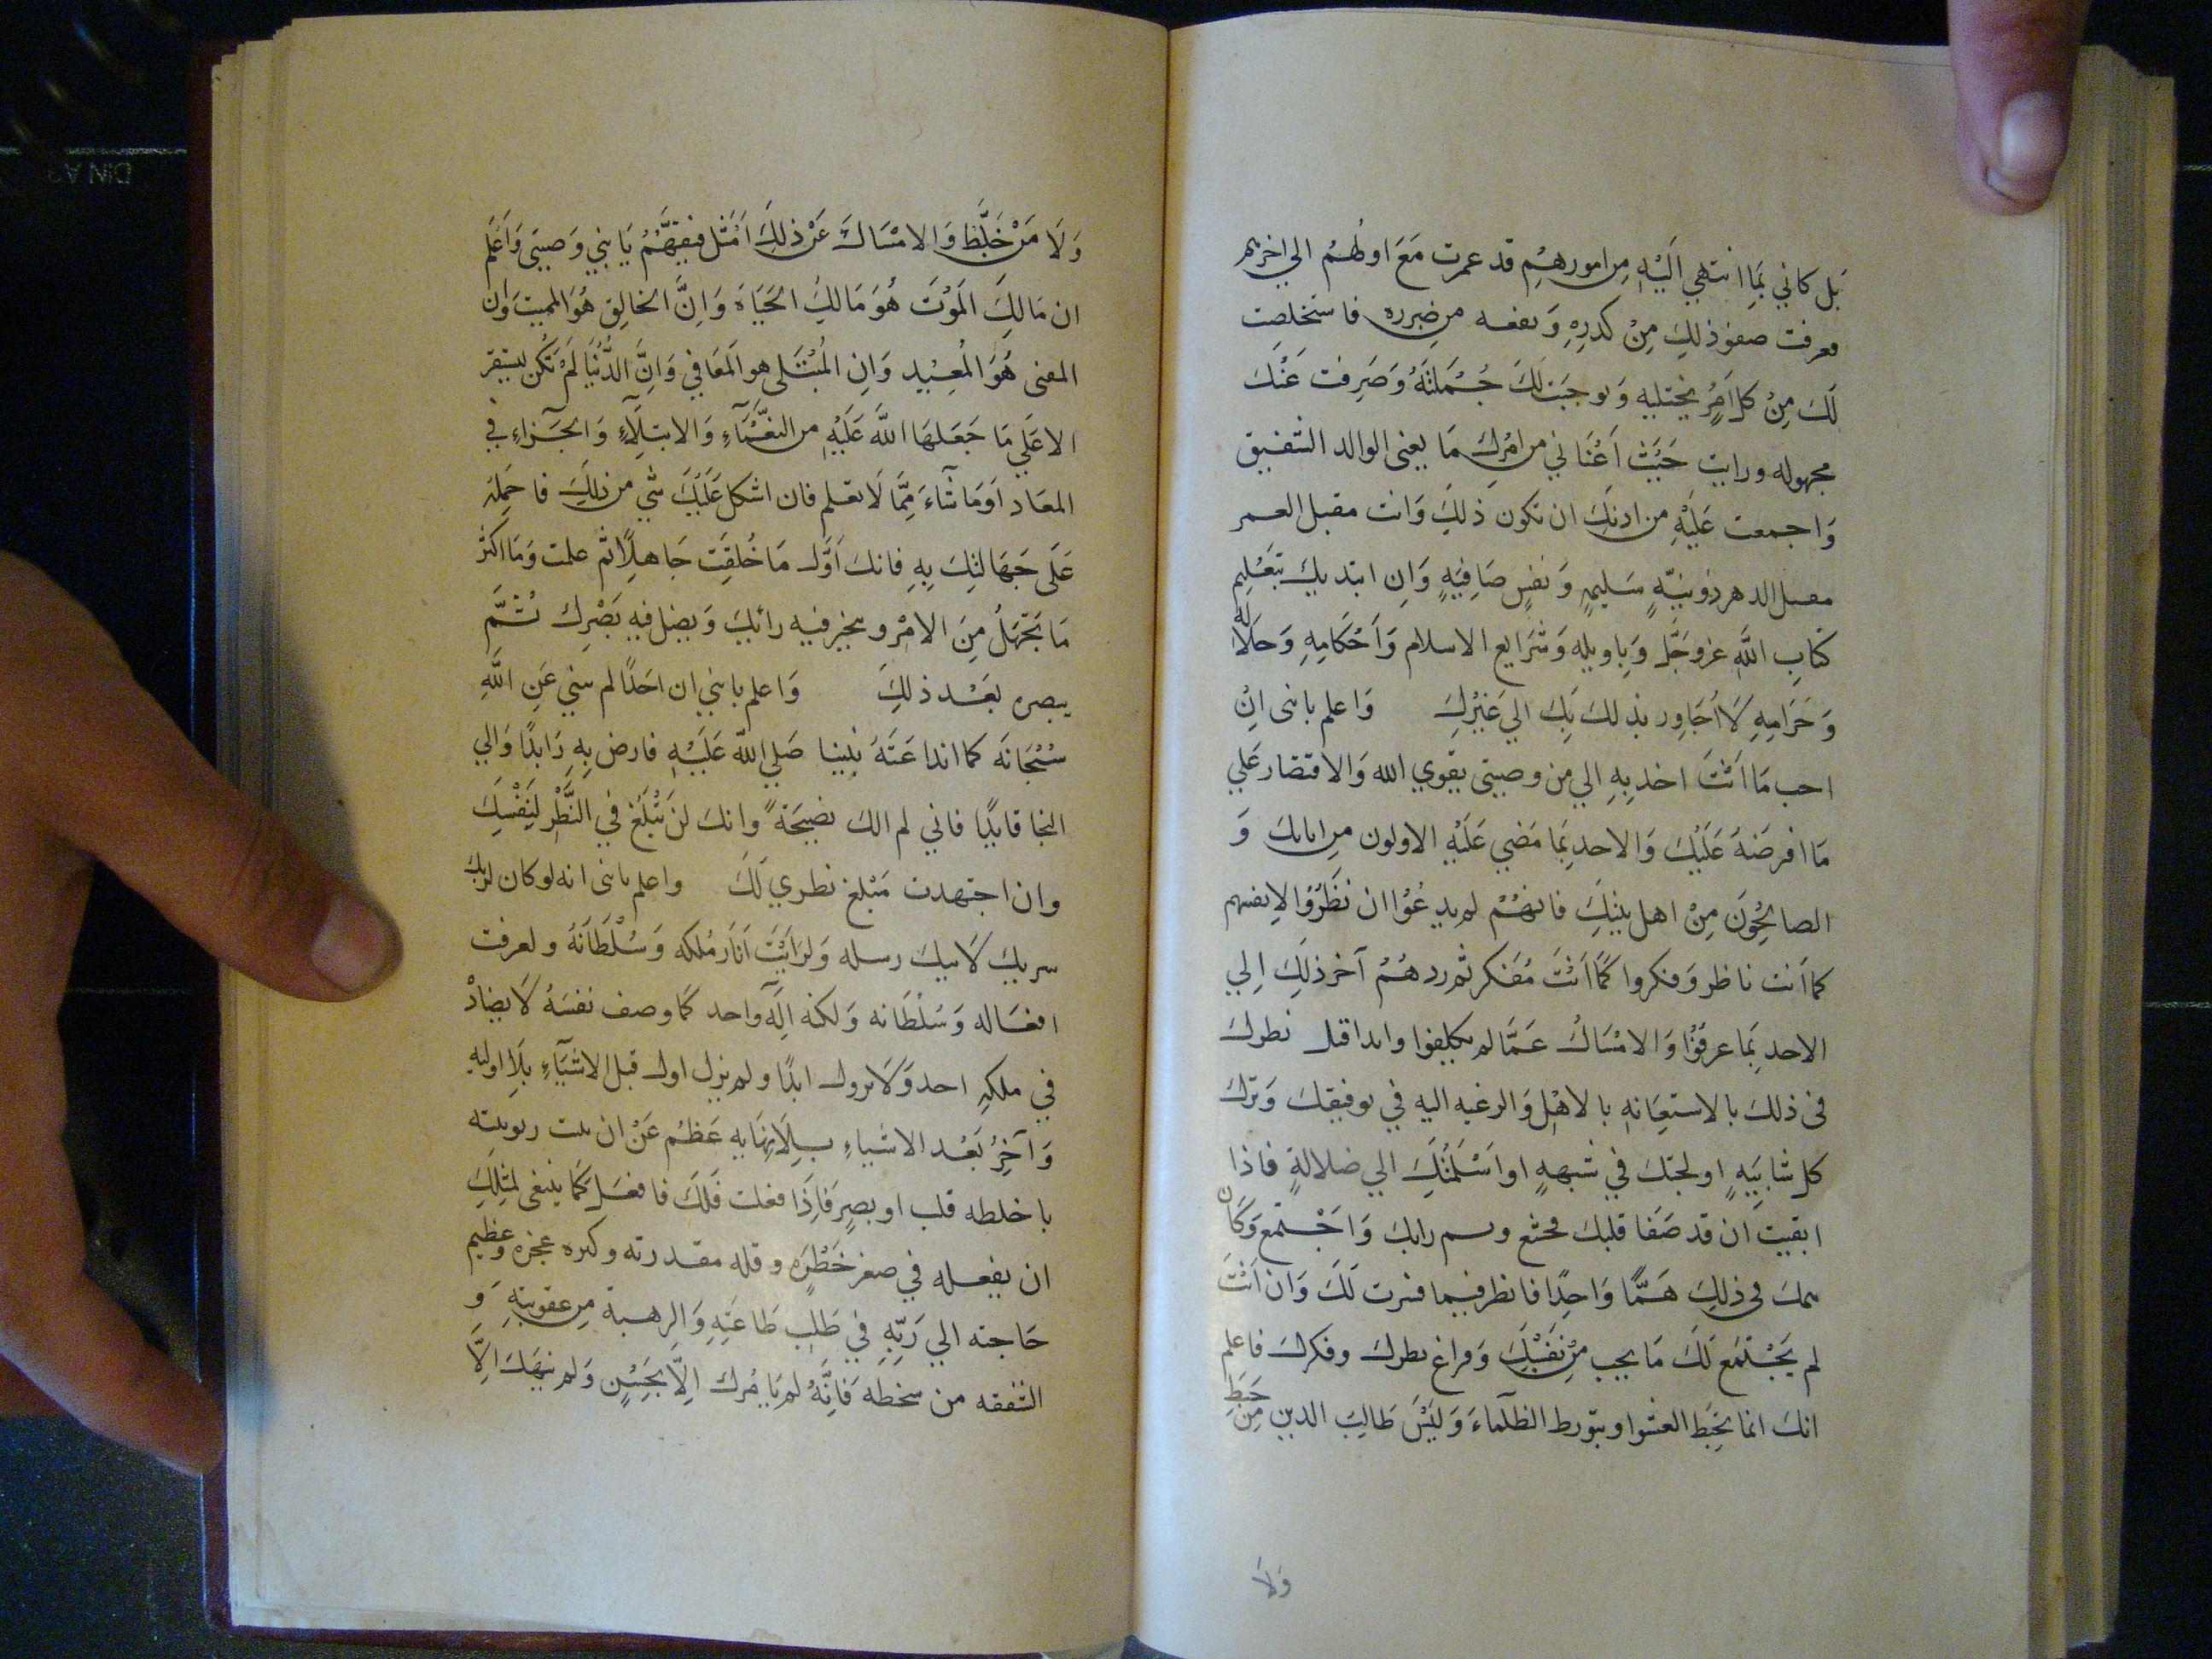 بَل كاني بَما انتهي اليْهِ مِن امورهِمُ قد عمرت مَعَ اولهُم الي اخرهم
فعرفت صفو ذلِكِ مِنْ كدرِهِ وَ نفعه من ضرره فاستخلصت
لَكَ مِنْ كل اَمِرٍ نخيله وَ توخيت لَكَ جُمَلَتَهُ وَصَرِفت عَنْكَ
مجهوله ورايت حَيْث اَعْنَاني من امْرِكَ مَا يعنى الوالد الشفيق
وَاجمعت عَلَيْهِ من ادبِكَ ان تكون ذلِكَ وَانت مقبل العمر
مقبل الدهر ذونيّهٍ سَليمهٍ وَنفسٍ صَافِيَهٍ وَانِ ابتديك بَتَعْليِم
كتابِ اللّهِ عزوجَلّ وَتاويله وَشَرَايع الاسلام وَاَحْكَامِهِ وَحَلاله
وَحَرَامِهِ لَا اُجَاوِر بذلكَ بِكَ الي غَيْرِكَ وَاعلم يابنى انِْ
احب مَا اَنْتَ اخد بِهِ الي مِن وصيتى بقوي الله وَالاقتصار عَلي
مَا افرضَهَ عَلَيْكَ وَالاحد بِمَا مَضي عَلَيْهِ الاولون مِن ابايك وَ
الصالِحُونَ مِنْ اهل بيتِكَ فانهُمُ لم يدعُوا ان نظَرُوا لانفسهم
كما اَنت ناظر وَفكروا كَمَا اَنْتَ مُفَكر ثم ردهُمُ آخر ذلَكِ اِلي
الاحد بِمَا عرفوُا وَالامْسَاكَ عَمَّا لم يكلفوا وابدا قبل نطرك
فى ذلكَ بالاستعِانه بالاهلْ وَالرغبه اليه في توفيقك وَترك
كل شايبَهٍ اولجتكَ في شبههٍ اواَسْلَمتكَِ الي ضلالةٍ فاذا
ايقيت ان قد صَفا قلبك فخشع وتم رايك وَاجْتمع وَكَان
همك فى ذلِكِ هَمًّا وَاحِدًا فانظر فيما فسرت لَكَ وَان اَنْتَ
لم يَجْتمَع لَكَ مَا يحب مِنْ نفسِْكَ وَفراغ نطرك وفكرك فاعلم
انكَ انما تخِبَط العشوا وتتورط الظلماءَ وَليْسَ طَالِب الدين مِن خبَطِ
وَلاَ
وَلَا مَنْ خَلَّطَ وَالامْسَاكَ عَنْ ذلِكَ اَمْثل فيفهَّمُ يَابني وَصيتى وَاعْلَم
ان مَالِكَ المَوْتَ هُوَ مَالكِ الحَيَاهَ وَاِنَّ الخالِقِ هُوَ المميت وَان
المفنى هُوَ المُعِيْد وَانِ المُبْتَلى هو المَعَافي وَانَّ الدُّنْيَا لَمْ تَكُن لتستقر
الا عَلي مَا جَعَلهَا اللّه عَلَيْهِ من النعْمَآءِ وَالابتلَآءِ وَالجَزآءِ في
المعَاد اَوَمَا شآءَ مِمَّا لَا تعلم فان اشكل عَلَيْكَ شي من ذلِكَ فاحمِلهَ
عَلَى جَهَالتِكَ بِهِ فانكَ اَوَّل مَا خُلقتَ جَاهِلًا ثم علمت وَمَا اكثر
مَا تَجْهَلُ مِنَ الامْرِ ويتحير فيه رائيكَ وَيضل فيهِ بَصْرِك ثُمَّ
يبصره بَعْد ذلِكَ وَاعلم يابني ان احَدًا لم ينبي عَنِ اللّهِ
سُبْحَانَه كما انبا عَنَهُ نبينا صَلي اللّه عَلَيْهِ فارض بِهِ رَايدًا وَالي
النجا قايدًا فاني لم الك نصيحَةً وانكَ لن تْبلَغ في النَّظْر لِنَفْسِكَ
وان اجتهدت مَبْلغ نطري لَكَ واعلم يابنى انه لوكان لربك
شريك لَاتتك رسله وَلرَاَيْتَ اَثَارَ مُلكه وَسُلْطَانَهُ ولعرفت
افعَاله وَسُلْطَانه وَلكنه اِلهَ واحد كَما وصف نفسَهُ لَا يضادْ
في ملكهِ احد وَلَا يزول ابدًا ولم يزل اول قبل الاشيَآءِ بِلَا اوليه
وَآخِرُ بَعْد الاشياءِ بِلَا نِهَايه عَظمُ عَنْ ان يثبت ربوبيته
باخلطه قلب او بصرِ فَاِذَا فعلت فَلكَ فافعَل كَمَا ينبغى لمِثلِكَ
ان يفعله في صغر خَطْرَِه وقله مقدرته وكثره عجزه وعظيم
حَاجته الي رَبِّهِ في طَلبِ طَاعَتِهِ وَالرهبة مِن عقوبتهِ وَ
الشفقه من سخطه فَانِّهُ لم يَامُرك اِلّا بحَسَنٍ وَلم ينهَكَ اِلَّا